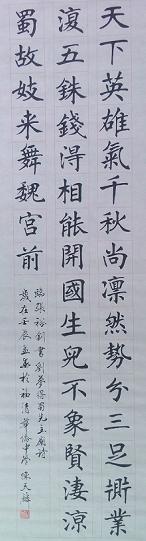 天下英雄氣千秋尚凛然勢分三足鼎業
復五銖錢得相能開國生兒不象賢淒涼
蜀故妓来舞魏宮前
臨張裕釗書劉夢得蜀先主廟詩
歲在壬辰孟夏於福清華僑中學